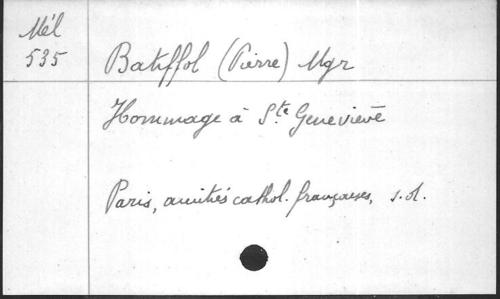 Mél
535
Batiffol (Pierre) Mgr
Hommage à Ste Geneviève
Paris, amitiés cathol. françaises, s.d.